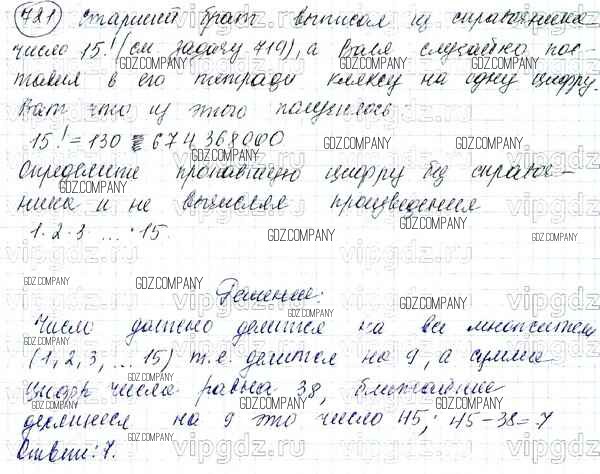 721 Старший брат выписал из справочника
число 15! (см. задачу 719), а Валя случайно пос-
тавил в его тетради кляксу на одну цифру.
Вот что из этого получилось:
15! = 130 674 368000
Определите пропавшую цифру без справоч-
ника и не вычисляя произведения
1·2·3 ... · 15.
Решение:
Число должно делится на все множители
(1, 2, 3, ... 15) т.е. делится на 9, а сумма
цифр числа равна 38, ближайшие
делящиеся на 9 это число 45; 45-38=7
Ответ: 7.
GDZ.COMPANY
vipgdz.ru